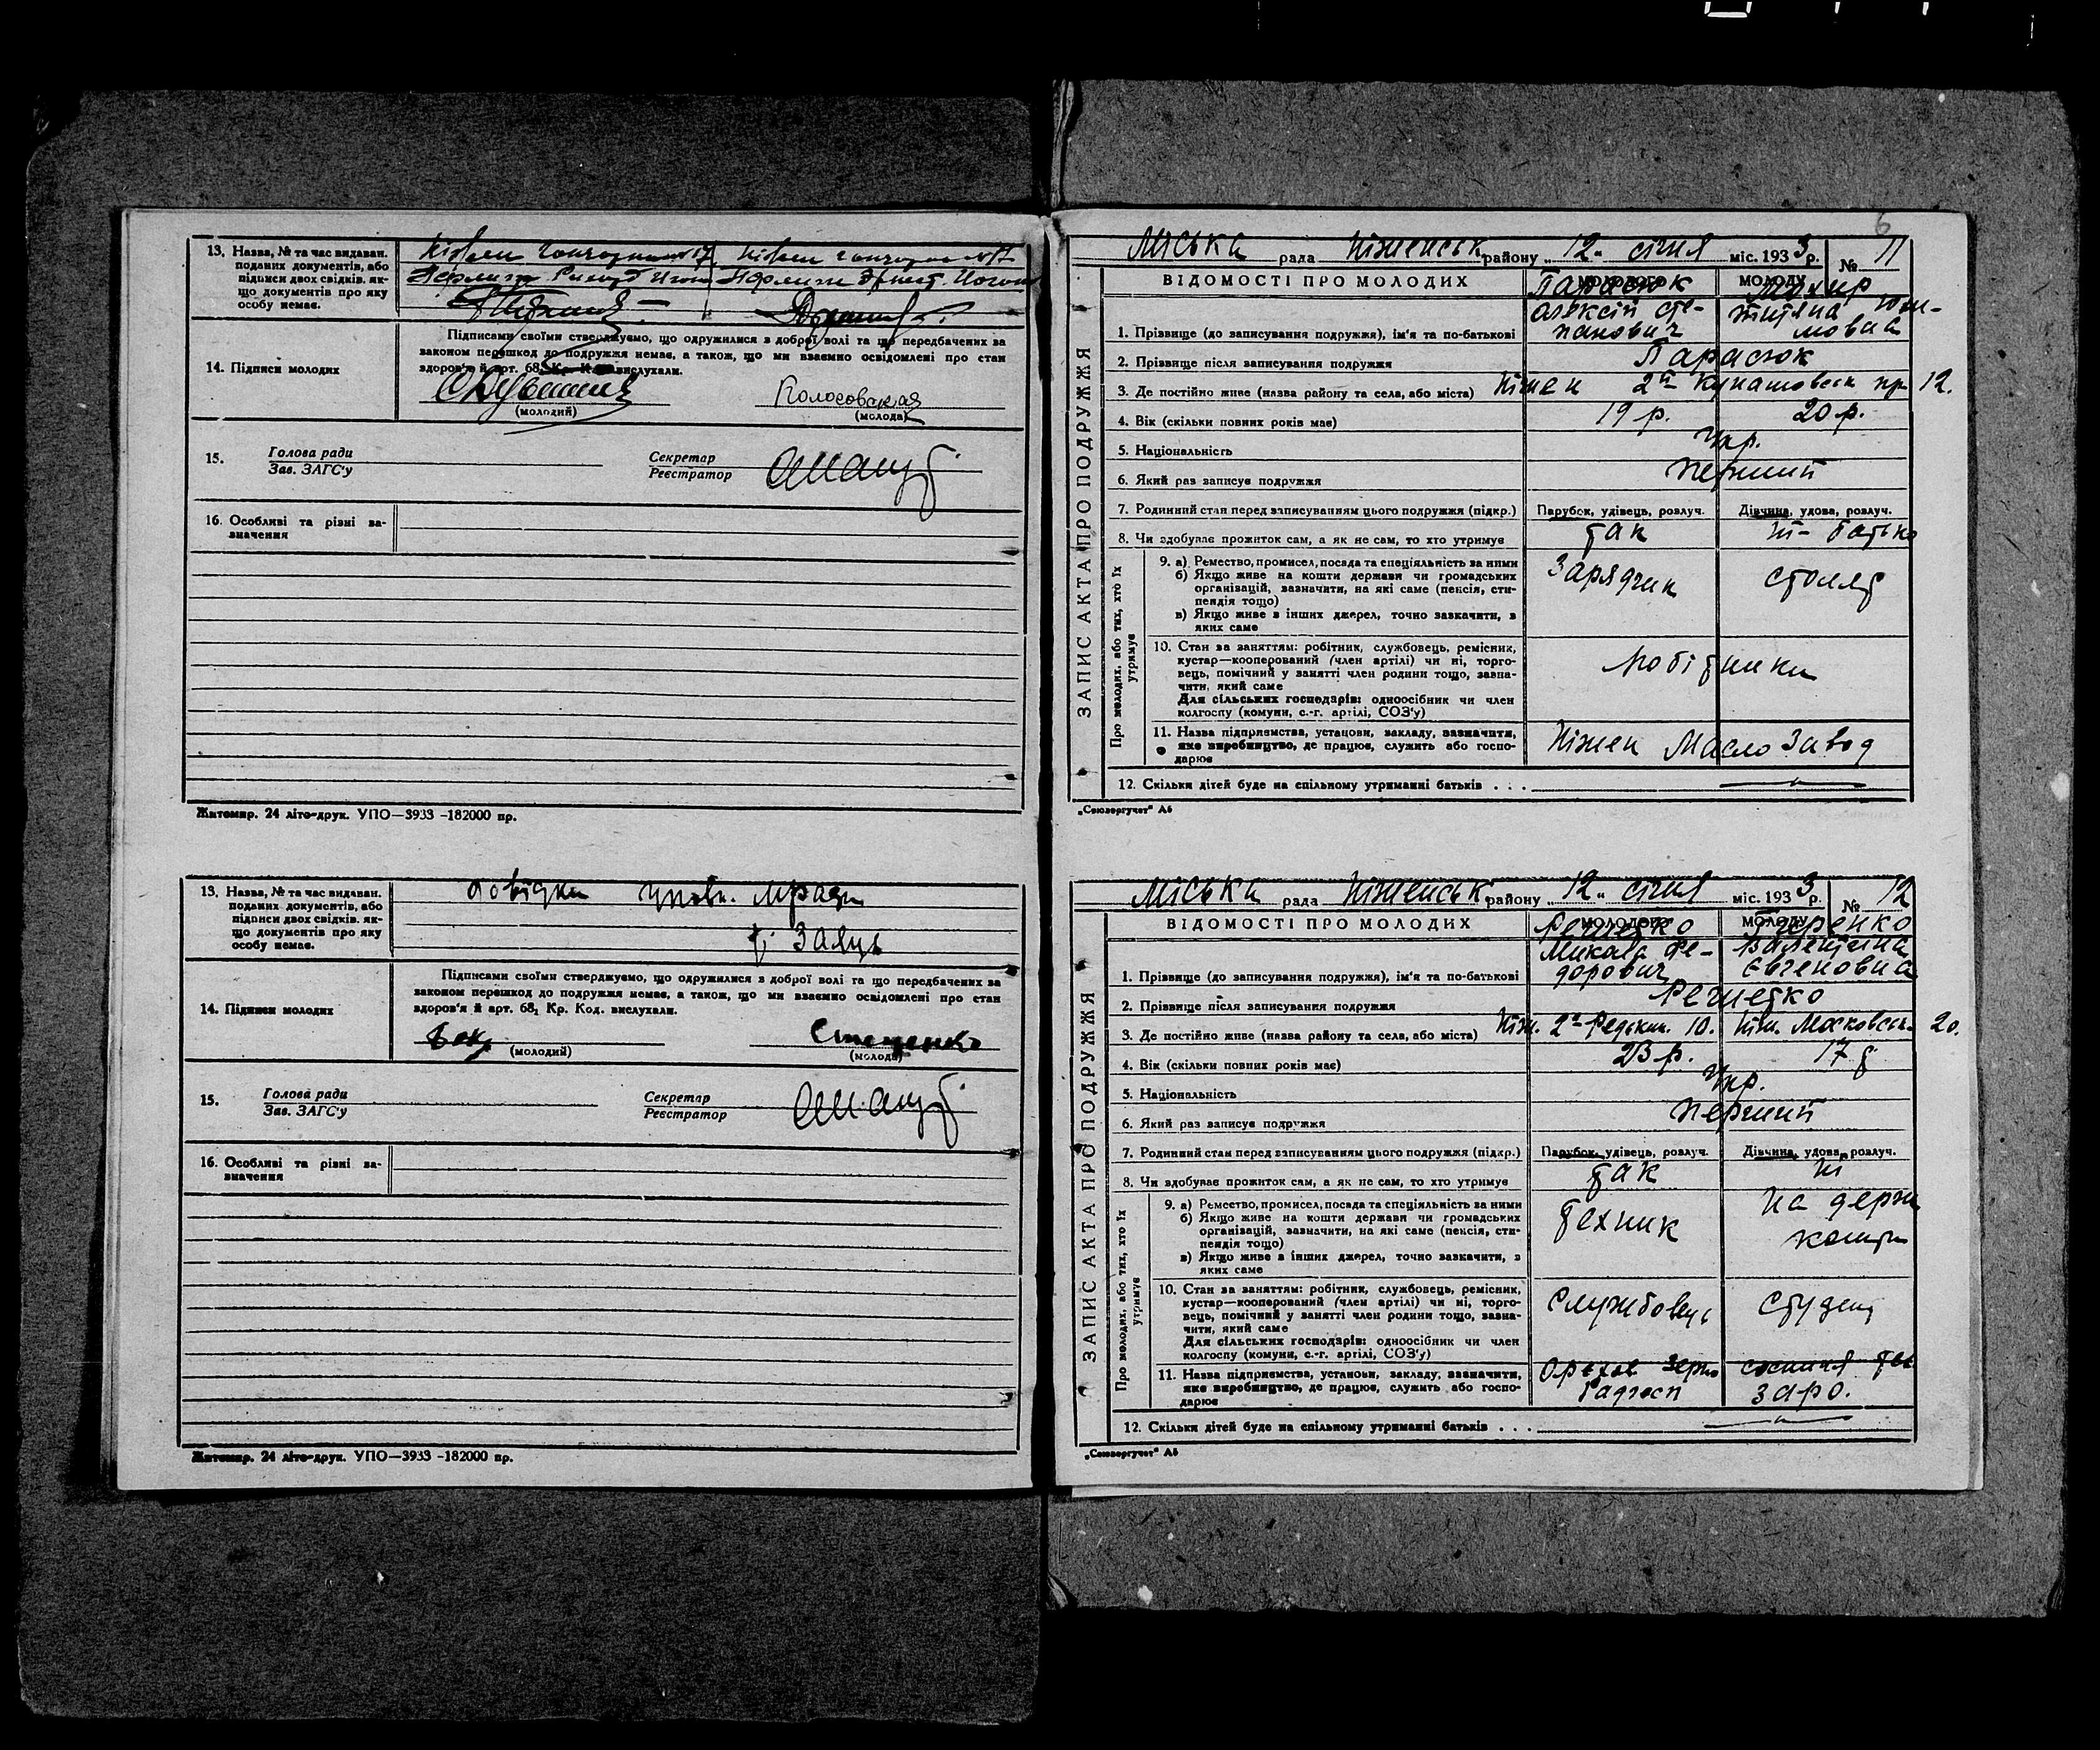 13. Назва, № та час видаван.
поданих документів, або
підписи двох свідків, як-
що документів про яку
особу немає.
Підписами своїми стверджуємо, що одружилися з доброї волі та що передбачених за
законом перешкод до подружжя немає, а також, що ми взаємно освідомлені про стан
здоров'я й арт. 68, вислухали.
14. Підписи молодих
Колосовская
(молодий) (молода)
15. Голова ради Секретар
Зав. ЗАГС'у Реєстратор
16. Особливі та різні за-
значення
Житомир. 24 літо-друк. УПО—3933 -182000 пр.
13. Назва, № та час видаван.
поданих документів, або
підписи двох свідків, як-
що документів про яку
особу немає.
довідки
Заяць
Підписами своїми стверджуємо, що одружилися з доброї волі та що передбачених за
законом перешкод до подружжя немає, а також, що ми взаємно освідомлені про стан
здоров'я й арт. 68, Кр. Код. вислухали.
14. Підписи молодих
(молодий) (молода)
15. Голова ради Секретар
Зав. ЗАГС'у Реєстратор
16. Особливі та різні за-
значення
Житомир. 24 літо-друк. УПО—3933 -182000 пр.
6
Міська рада Ніженськ району „12" січня міс. 1933 р. № 11
ЗАПИС АКТА ПРО ПОДРУЖЖЯ
ВІДОМОСТІ ПРО МОЛОДИХ МОЛОДУ
Парасюк
Олексій Сте-
панович
1. Прізвище (до записування подружжя), ім'я та по-батькові
2. Прізвище після записування подружжя Парасюк
3. Де постійно живе (назва району та села, або міста) Ніжен 2й Кунашовськ пр 12.
4. Вік (скільки повних років має) 19 р. 20 р.
5. Національність Укр.
6. Який раз записує подружжя перший
7. Родинний стан перед записуванням цього подружжя (підкр.) Парубок, удівець, розлуч. Дівчина, удова, розлуч.
8. Чи здобуває прожиток сам, а як не сам, то хто утримує так ні - батько
Про молодих, або тих, хто їх утримує
9. а) Ремество, промисел, посада та спеціяльність за ними Зарядчик столяр
б) Якщо живе на кошти держави чи громадських
організацій, зазначити, на які саме (пенсія, сти-
пендія тощо)
в) Якщо живе з інших джерел, точно зазначити, з
яких саме
10. Стан за заняттям: робітник, службовець, ремісник,
кустар—кооперований (член артілі) чи ні, торго-
вець, помічний у занятті член родини тощо, зазна-
чити, який саме робітники
Для сільських господарів: одноосібник чи член
колгоспу (комуни, с.-г. артілі, СОЗ'у)
11. Назва підприємства, установи, закладу, зазначити,
яке виробництво, де працює, служить або госпо-
дарює Ніжен Масло Завод
12. Скільки дітей буде на спільному утриманні батьків . . .
„Союзоргучет" А6
Міська рада Ніженськ району „12" січня міс. 1933 р. № 12
ЗАПИС АКТА ПРО ПОДРУЖЖЯ
ВІДОМОСТІ ПРО МОЛОДИХ МОЛОДУ
Решетко
Микола Фе- Валентина
дорович Євгеновна
1. Прізвище (до записування подружжя), ім'я та по-батькові
2. Прізвище після записування подружжя Решетко
3. Де постійно живе (назва району та села, або міста) Ніж. 2а Редькин. 10. Ніж. Московськ. 20.
4. Вік (скільки повних років має) 23 р. 17 р
5. Національність Укр.
6. Який раз записує подружжя перший
7. Родинний стан перед записуванням цього подружжя (підкр.) Парубок, удівець, розлуч. Дівчина, удова, розлуч.
8. Чи здобуває прожиток сам, а як не сам, то хто утримує так ні
Про молодих, або тих, хто їх утримує
9. а) Ремество, промисел, посада та спеціяльність за ними технік на держ
б) Якщо живе на кошти держави чи громадських кошти
організацій, зазначити, на які саме (пенсія, сти-
пендія тощо)
в) Якщо живе з інших джерел, точно зазначити, з
яких саме
10. Стан за заняттям: робітник, службовець, ремісник,
кустар—кооперований (член артілі) чи ні, торго-
вець, помічний у занятті член родини тощо, зазна-
чити, який саме Службовець студент
Для сільських господарів: одноосібник чи член
колгоспу (комуни, с.-г. артілі, СОЗ'у)
11. Назва підприємства, установи, закладу, зазначити,
яке виробництво, де працює, служить або госпо-
дарює Радгосп
12. Скільки дітей буде на спільному утриманні батьків . . .
„Союзоргучет" А6